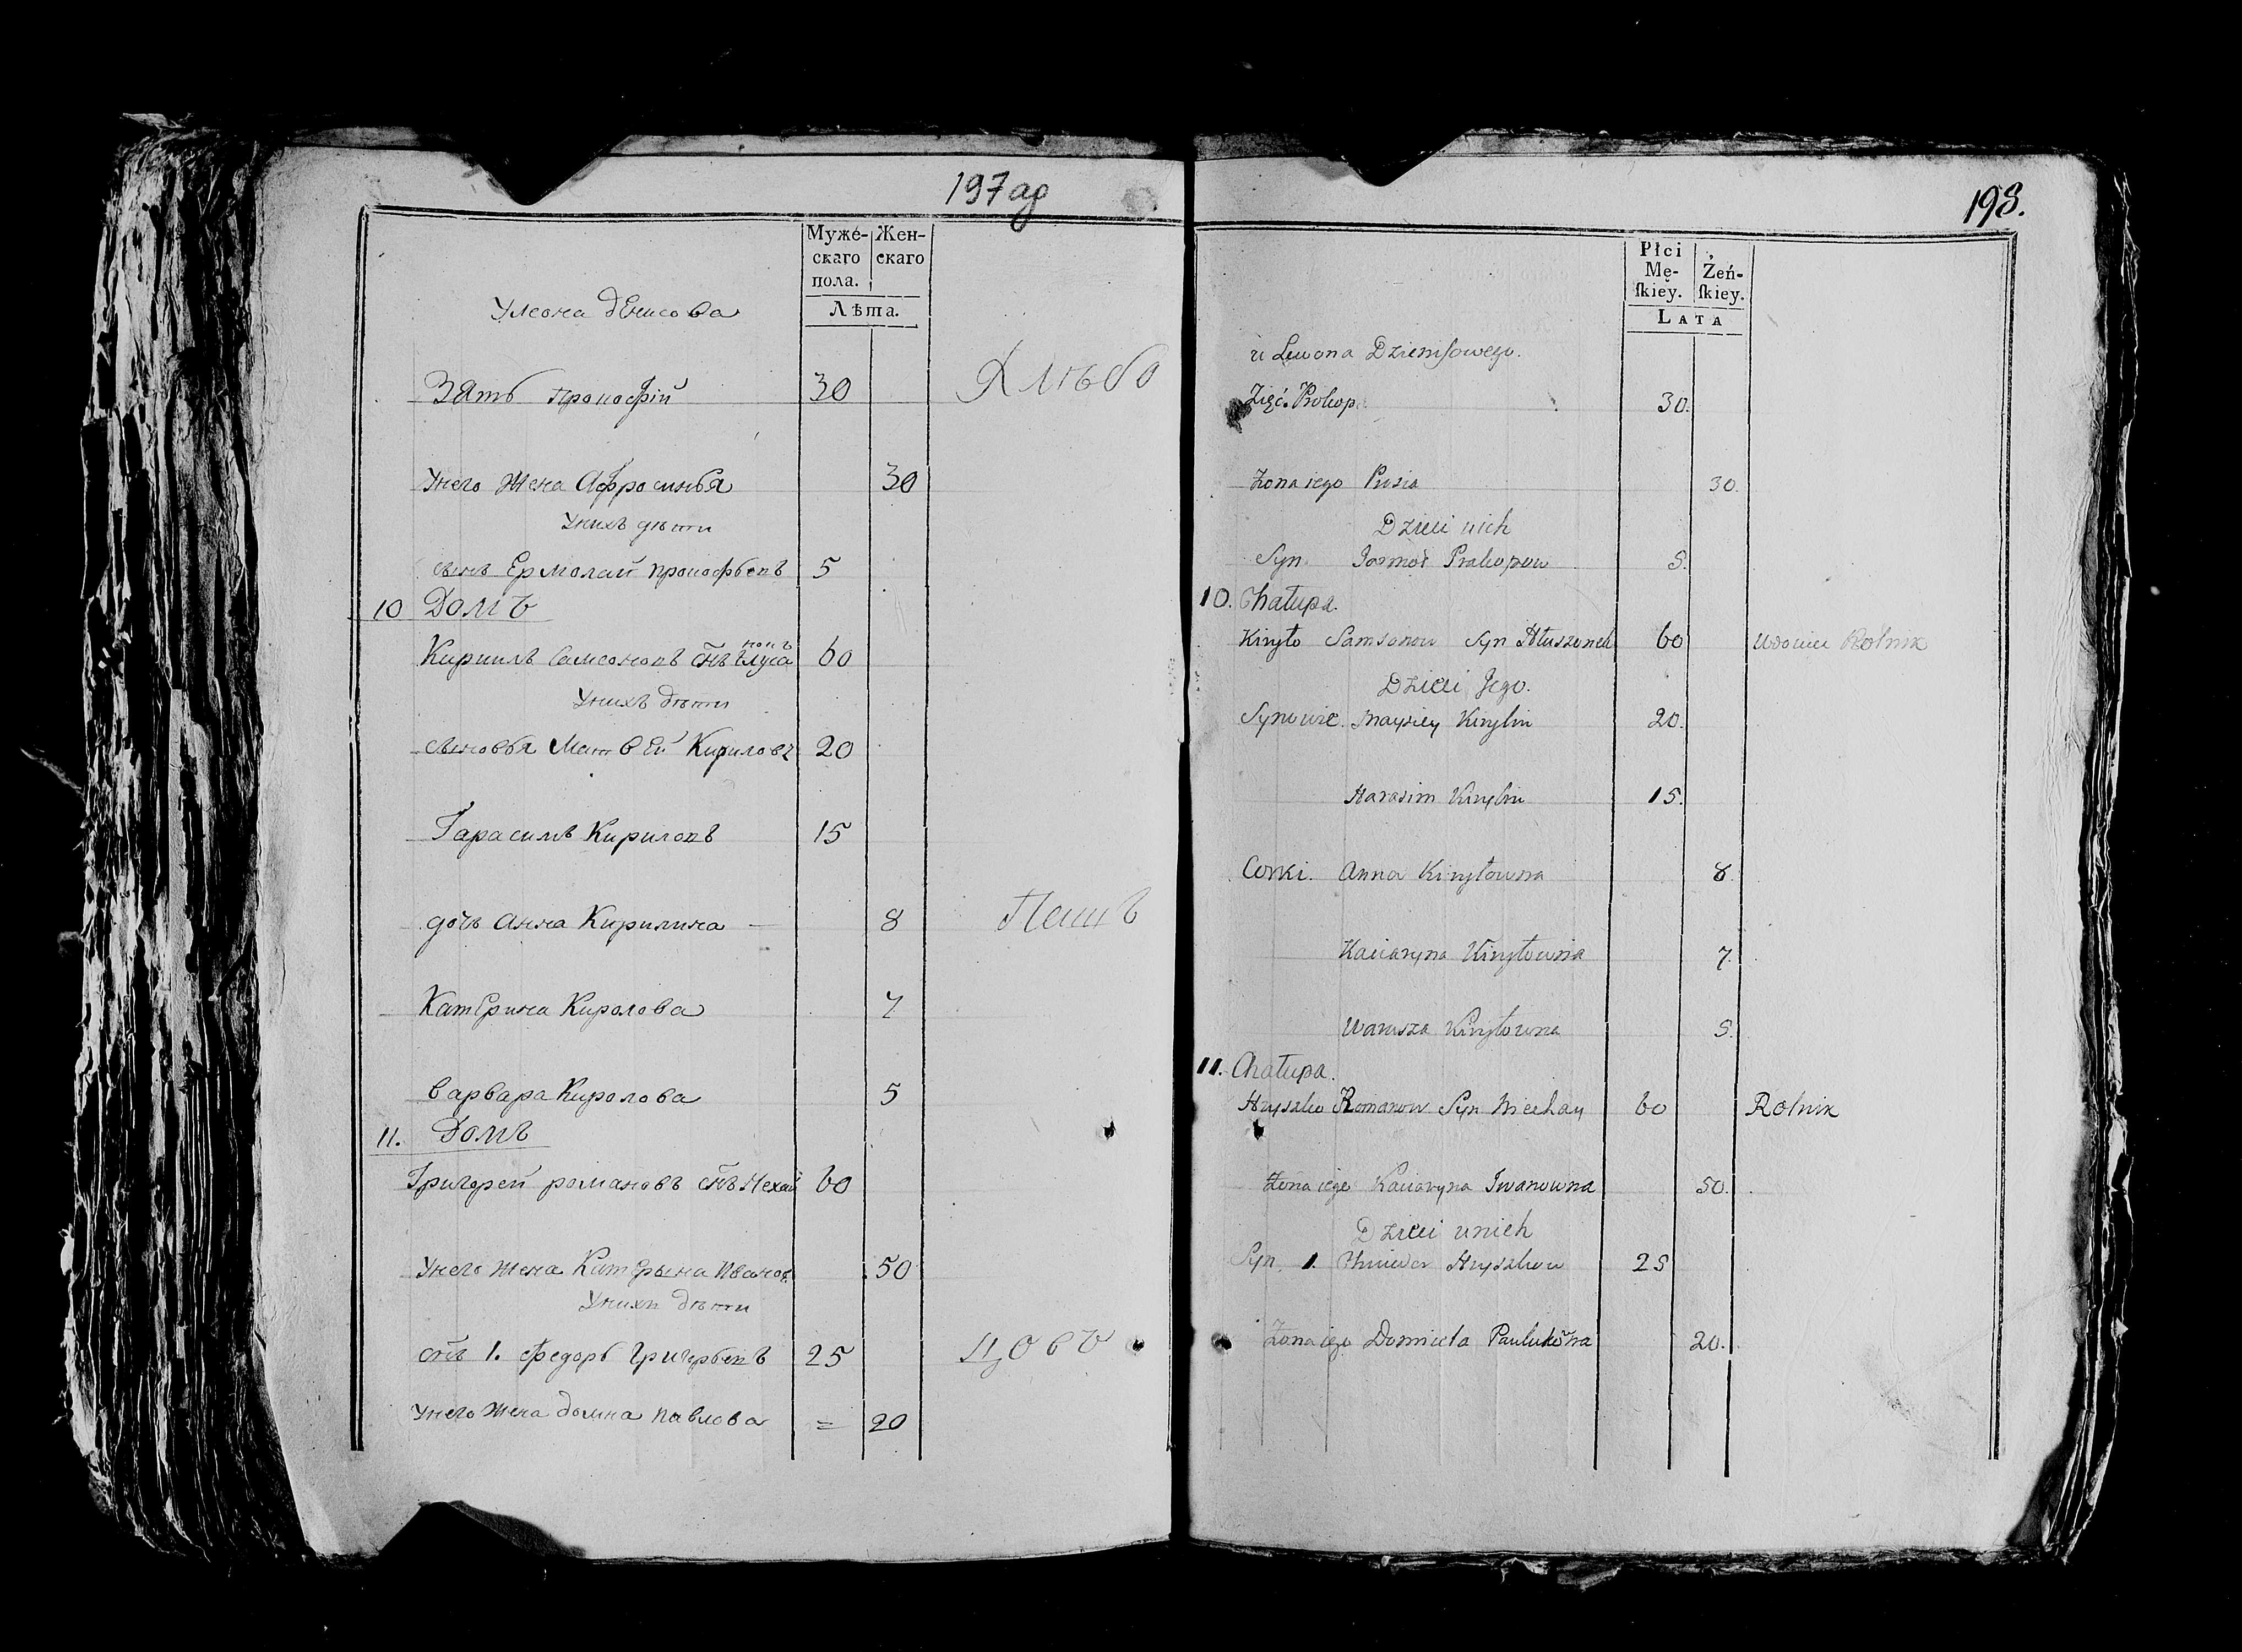 197 ад
Муже-
скаго
пола.
Жен-
скаго
Лѣта.
Улеона Денисова
Зять Прокофій 30
Хлѣбо
Унего Жена Афросинья 30
Унихъ дѣти
сынъ Ермолай Прокофьевъ 5
10 Домъ
Кирилъ Самсоновъ снъ Глуша 60
Унихъ дѣти
сыновья Матвей Кириловъ 20
Гарасимъ Кириловъ 15
дочь Анна Кирилина — 8
Пашъ
Катерина Киролова 7
Варвара Киролова 5
11. Домъ
Григорей романовъ снъ Нехай 60
Унего Жена Катерына Иванов. 50
Унихъ дѣти
снъ 1. Федоръ Григорьевъ 25
цовъ
Унего Жена домна Павлова = 20
198.
Płci
Mę-
skiey.
Żeń-
skiey.
LATA
u Lewona Dzienisowego.
Zięć. Prokop 30.
Żona iego Prusia 30.
Dzieci nich
Syn. Jarmoł Prakopow 5.
10. Chałupa.
Kiryło Samsonow Syn Hłuszonek 60 Wdowiec Rolnik
Dzieci Jego.
Synowie. Maysiey Kirylin 20.
Harasim Kirylin 15.
Corki. Anna Kiryłowna 8.
Kaciaryna Kiryłowna 7.
Warusza Kiryłowna 5.
11. Chałupa.
Hryszko Romanow Syn Niechay 60 Rolnik
Żona iego Kaciaryna Iwanowna 50.
Dzieci unich
Syn. 1. Chwiedor Hryszkow 25
Żona iego Domicela Paulukowna 20.